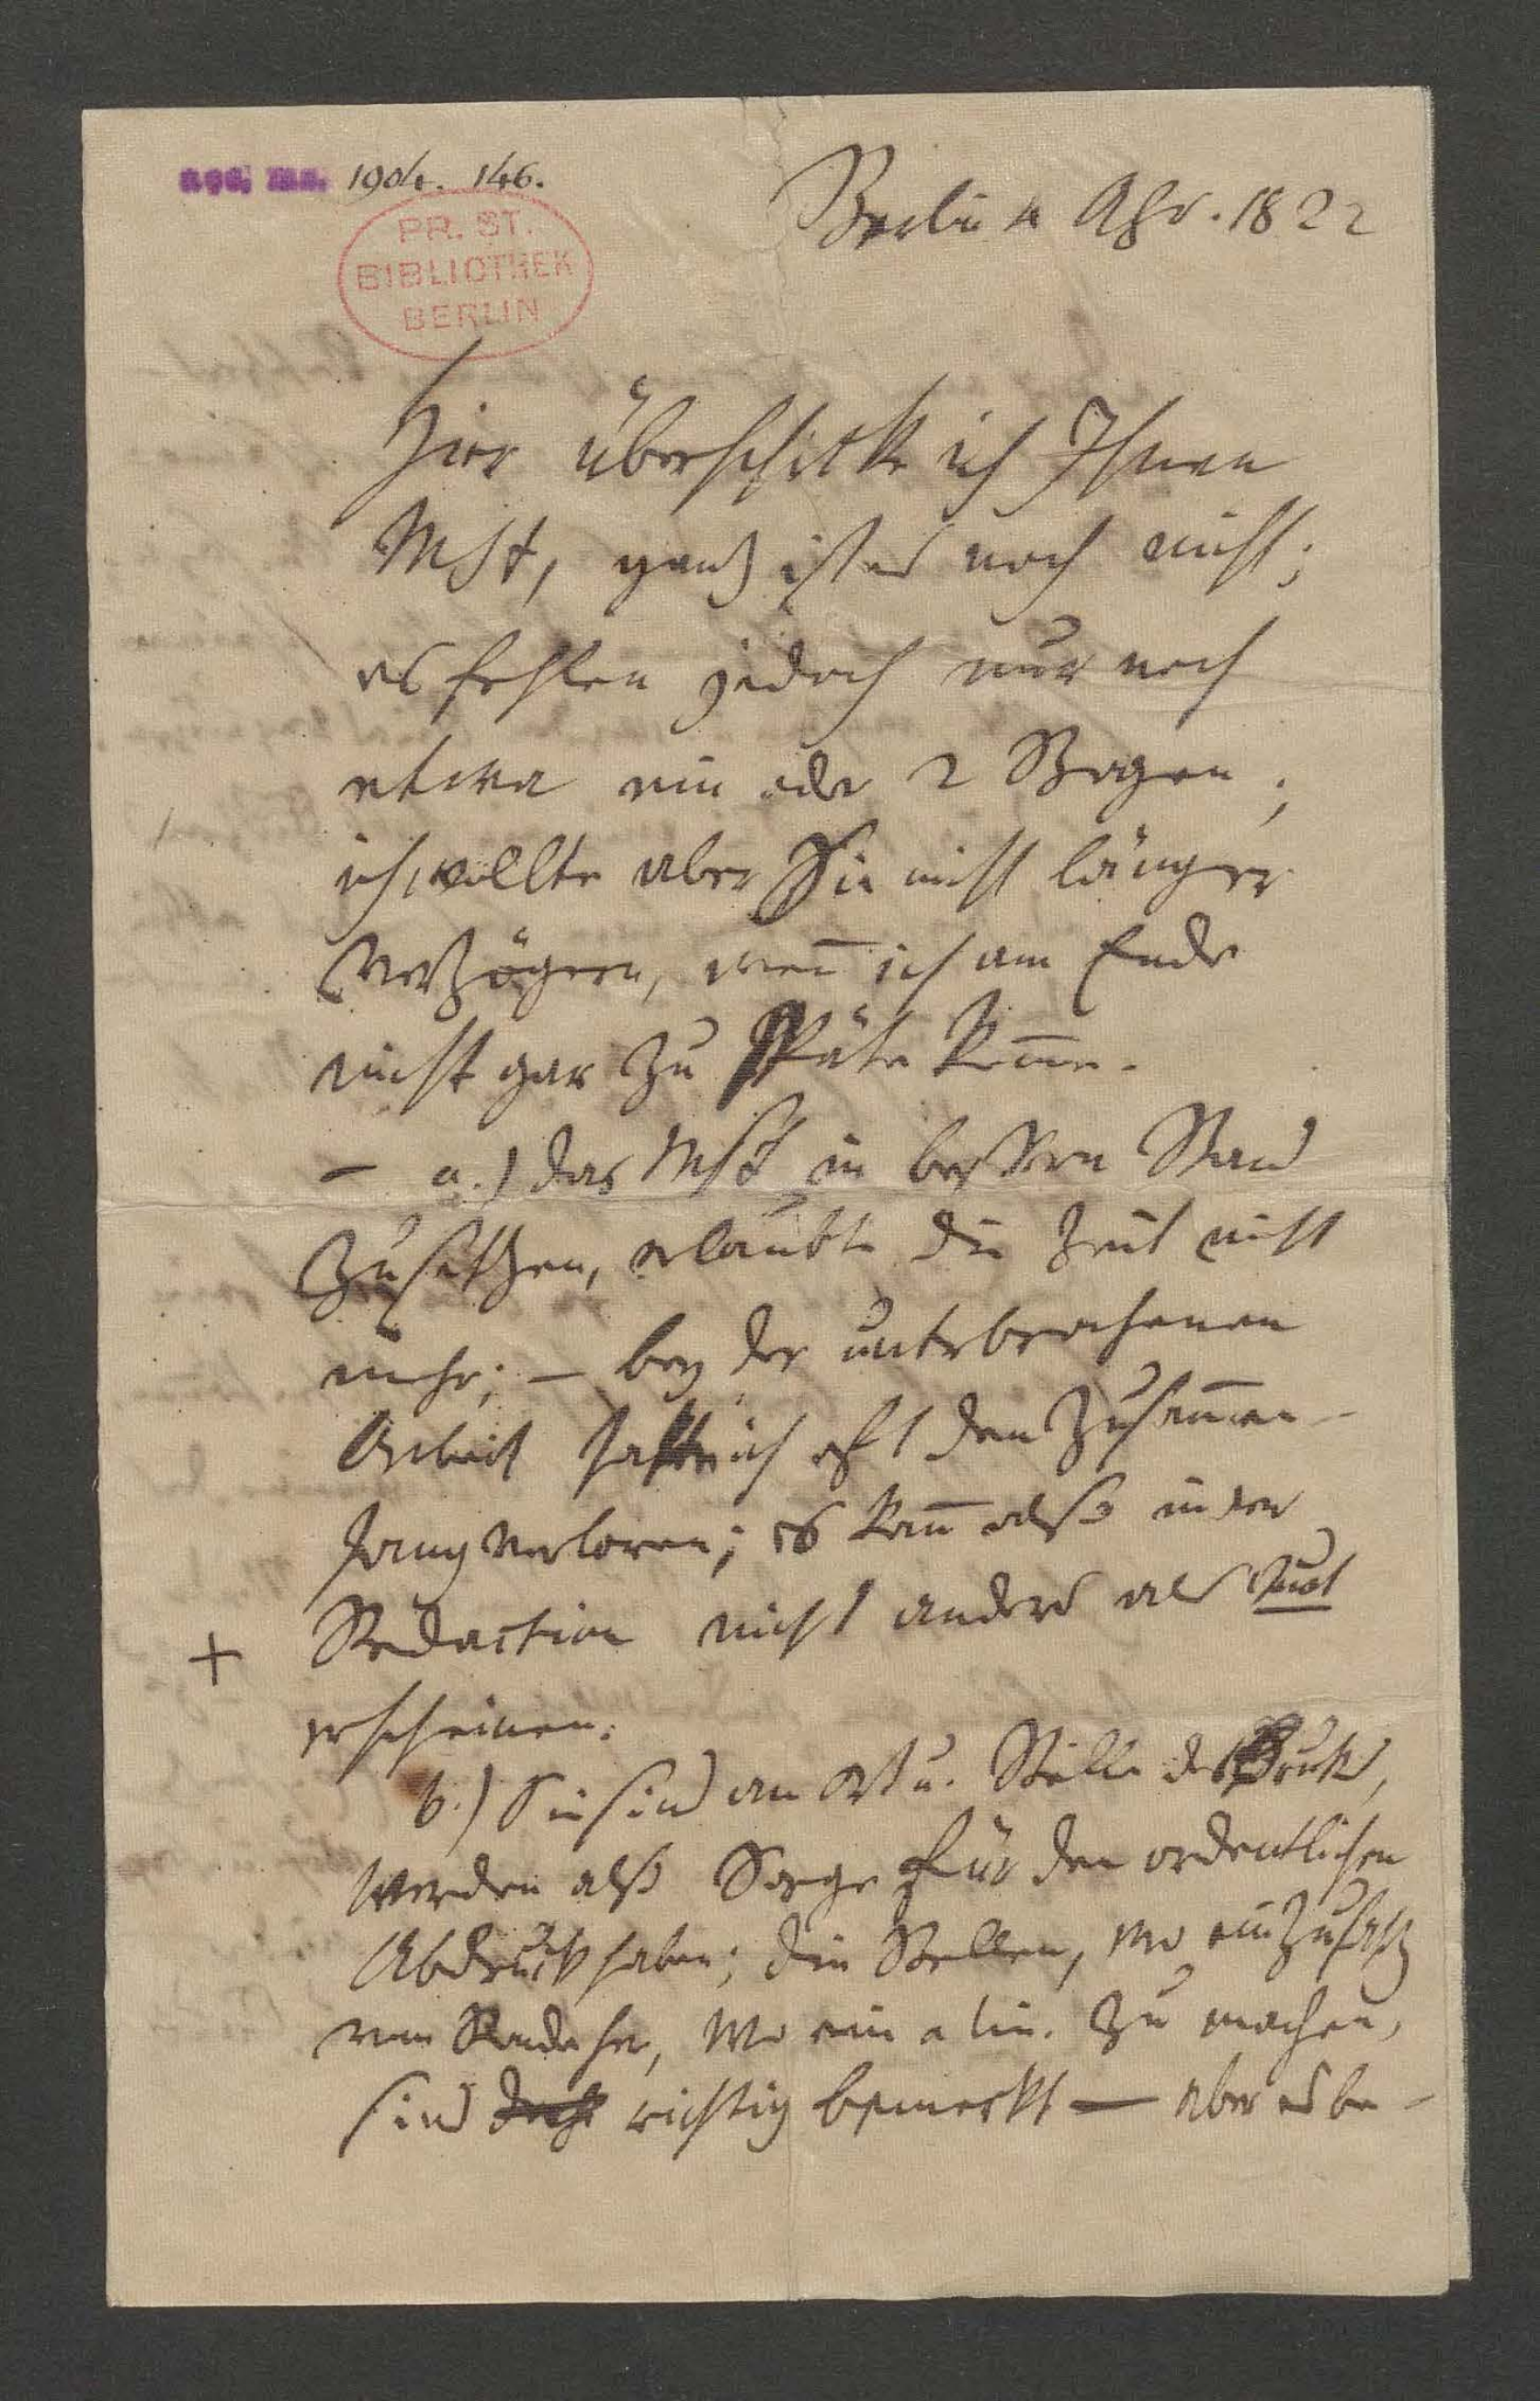 acc. ms. 1904. 146.
PR. ST.
BIBLIOTHEK
BERLIN
Berlin 4 Apr. 1822
Hier überschicke ich Ihnen
Mst, ganz ist es noch nicht;
es fehlen jedoch nur noch
etwa ein oder 2 Bogen;
ich wollte aber Sie nicht länger
verzögern, weñ ich am Ende
nicht gar zu späte kom̄e.
– a.) das Mst in bessern Stand
zu setzen, erlaubte die Zeit nicht
mehr; – bey der unterbrochenen
Arbeit hatte ich oft den Zusam̄en-
hang verloren; es kañ also in der
Redaction nicht anders als
+
erscheinen.
b.) Sie sind an Ort u. Stelle des Druks,
werden also Sorge für den ordentlichen
Abdruck haben; die Stellen, wo ein Zusatz
vom Rande her, wo ein a lin. zu machen,
sind richtig bemerkt – aber es be-